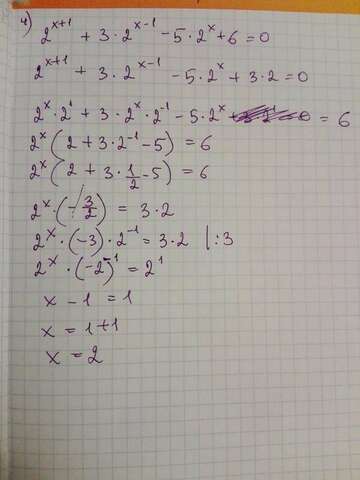 4) 2^{x+1} + 3 · 2^{x-1} - 5 · 2^x + 6 = 0
2^{x+1} + 3 · 2^{x-1} - 5 · 2^x + 3 · 2 = 0
2^x · 2^1 + 3 · 2^x · 2^{-1} - 5 · 2^x = 6
2^x (2 + 3 · 2^{-1} - 5) = 6
2^x (2 + 3 · 1/2 - 5) = 6
2^x · (- 3/2) = 3 · 2
2^x · (-3) · 2^{-1} = 3 · 2 | : 3
2^x · (-2)^{-1} = 2^1
x - 1 = 1
x = 1 + 1
x = 2